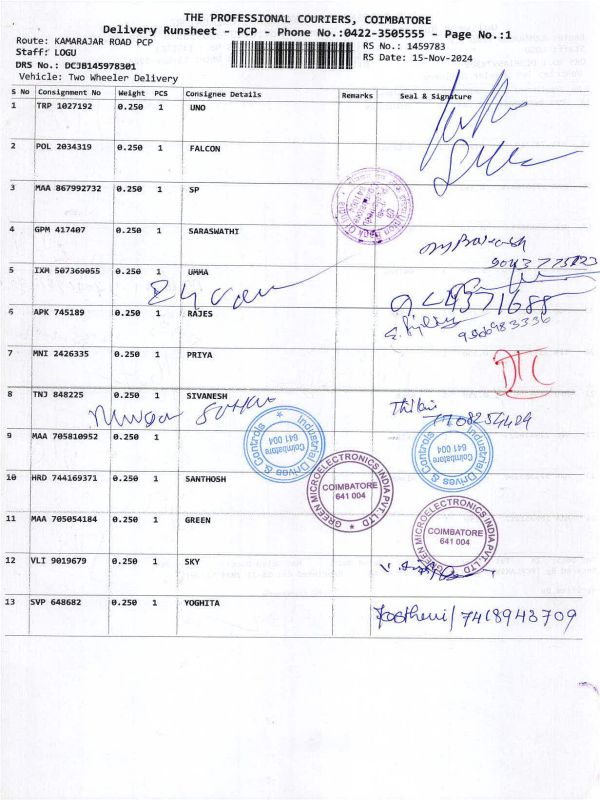 THE PROFESSIONAL COURIERS, COIMBATORE
Delivery Runsheet - PCP - Phone No.:0422-3505555 - Page No.:1
Route: KAMARAJAR ROAD PCP
RS No.: 1459783
Staff: LOGU
RS Date: 15-Nov-2024
DRS No.: DCJB145978301
Vehicle: Two Wheeler Delivery
S No Consignment No Weight PCS Consignee Details Remarks Seal & Signature
1 TRP 1027192 0.250 1 UNO
2 POL 2034319 0.250 1 FALCON
3 MAA 867992732 0.250 1 SP
4 GPM 417407 0.250 1 SARASWATHI
5 IXM 507369055 0.250 1 UMMA
6 APK 745189 0.250 1 RAJES
9500983336
7 MNI 2426335 0.250 1 PRIYA
DTC
8 TNJ 848225 0.250 1 SIVANESH
7708254404
9 MAA 705810952 0.250 1
Industrial Drives & Controls
Coimbatore
641 004
Industrial Drives & Controls
Coimbatore
641 004
10 HRD 744169371 0.250 1 SANTHOSH
GREEN MICROELECTRONICS INDIA PVT. LTD
COIMBATORE
641 004
11 MAA 705054184 0.250 1 GREEN
GREEN MICROELECTRONICS INDIA PVT. LTD
COIMBATORE
641 004
12 VLI 9019679 0.250 1 SKY
13 SVP 648682 0.250 1 YOGHITA
7418943709